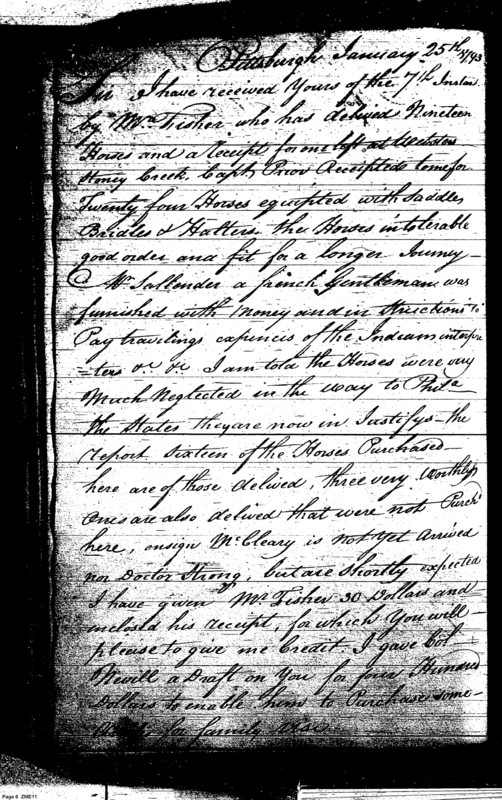 Pittsburgh January 25th 1793
Sir I have received Yours of the 7th Instan
by Mr. Fisher who has delived Nineteen
Horses and a Receipt for one left at Websters
Honey Creek. Capt. Prior Receipted to me for
Twenty four Horses equipted with Saddles
Bridles & Halters the Horses in tolerable
good order and fit for a longer Journey –
Mr. Sallender a french Gentleman was
furnished with money and in structions to
Pay travilings expences of the Indians interpre
=ters &c. &c I am told the Horses were very
Much Neglected in the way to Phila
the States they are now in Justifys the
report Sixteen of the Horses Purchased –
here are of those delived, three very worthless
Ones are also delived that were not Purchd
here, ensign McCleary is not yet arrived
nor Doctor Strong, but are shortly expected
I have given Mr Fisher 30 Dollars and
inclosed his receipt, for which You will –
please to give me Credit I gave Col
Nevill a Draft on You for four Hundred
Dollars to enable him to Purchase some –
for family use
Page 6 ZME11